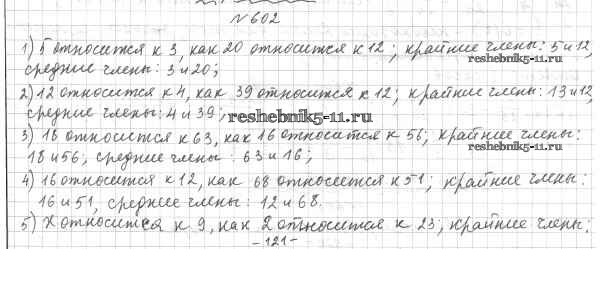 №602
1) 5 относится к 3, как 20 относится к 12; крайние члены: 5 и 12,
средние члены: 3 и 20;
reshebnik5-11.ru
2) 12 относится к 4, как 39 относится к 12; крайние члены: 13 и 12,
средние члены: 4 и 39;
reshebnik5-11.ru
3) 18 относится к 63, как 16 относится к 56; крайние члены:
18 и 56, средние члены: 63 и 16;
reshebnik5-11.ru
4) 16 относится к 12, как 68 относится к 51; крайние члены:
16 и 51, средние члены: 12 и 68.
5) X относится к 9, как 2 относится к 23; крайние члены:
- 121 -